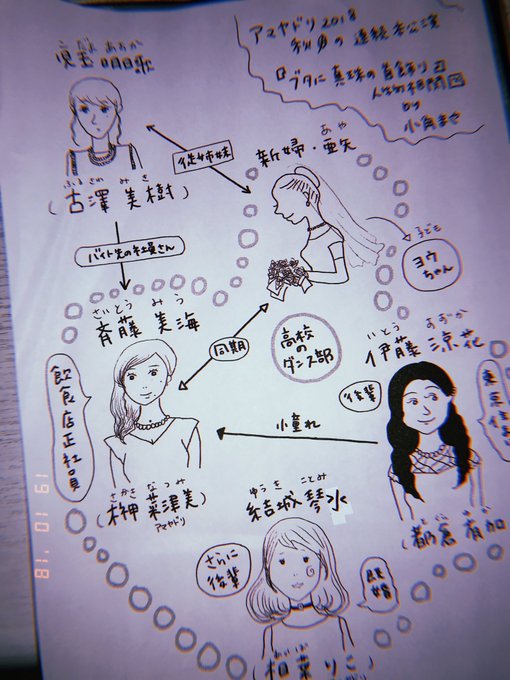 アマヤドリ2018
秋の 連続本公演
『ブタに真珠の首飾り』
人物相関図
by
小角まや
だま あすか
明日歌
従姉妹
あや
新婦・亜矢
ふるさわ みき
(古澤 美樹)
バイト先の社員さん
子ども
ヨウちゃん
さいとう みう
斉藤 美海
同期
高校の
ダンス部
いとう すずか
伊藤 涼花
後輩
東京住
飲食店正社員
小憧れ
さかき なつみ
(榊 菜津美)
アマヤドリ
ゆうき ことみ
結城 琴水
(都倉 有加
さらに
後輩
既婚
あいば
(相葉りこ)
'18 10 19